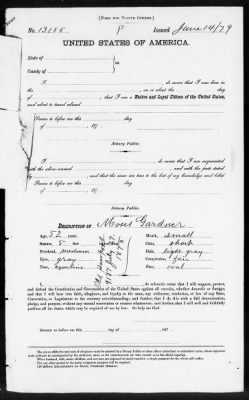 [FORM FOR NATIVE CITIZEN.]
No. 13155 Issued June 14/79
UNITED STATES OF AMERICA.
State of
County of
I, do swear that I was born in the
, on or about the day
of , that I am a Native and Loyal Citizen of the United States,
and about to travel abroad
Sworn to before me this
day of 187
Notary Public.
I, do swear that I am acquainted
with the above-named and with the facts
and that the same are true to the best of my knowledge and belief.
Sworn to before me this
day of 187
Notary Public.
DESCRIPTION OF Moses Gardner
Age, 52 years Mouth, small
Stature, 5 Chin, sharp
Forehead, medium Hair, light gray
Eyes, gray Complexion, fair
Nose, aquiline Face, oval
I, do solemnly swear that I will support, protect,
and defend the Constitution and Government of the United States against all enemies, whether domestic or foreign;
and that I will bear true faith, allegiance, and loyalty to the same, any ordinance, resolution, or law of any State,
Convention, or Legislature to the contrary notwithstanding; and further, that I do this with a full determination,
pledge, and purpose, without any mental reservation or evasion whatsoever; and, further, that I will well and faithfully
perform all the duties which may be required of me by law. So help me God.
Sworn to before me this day of 187
Notary Public.